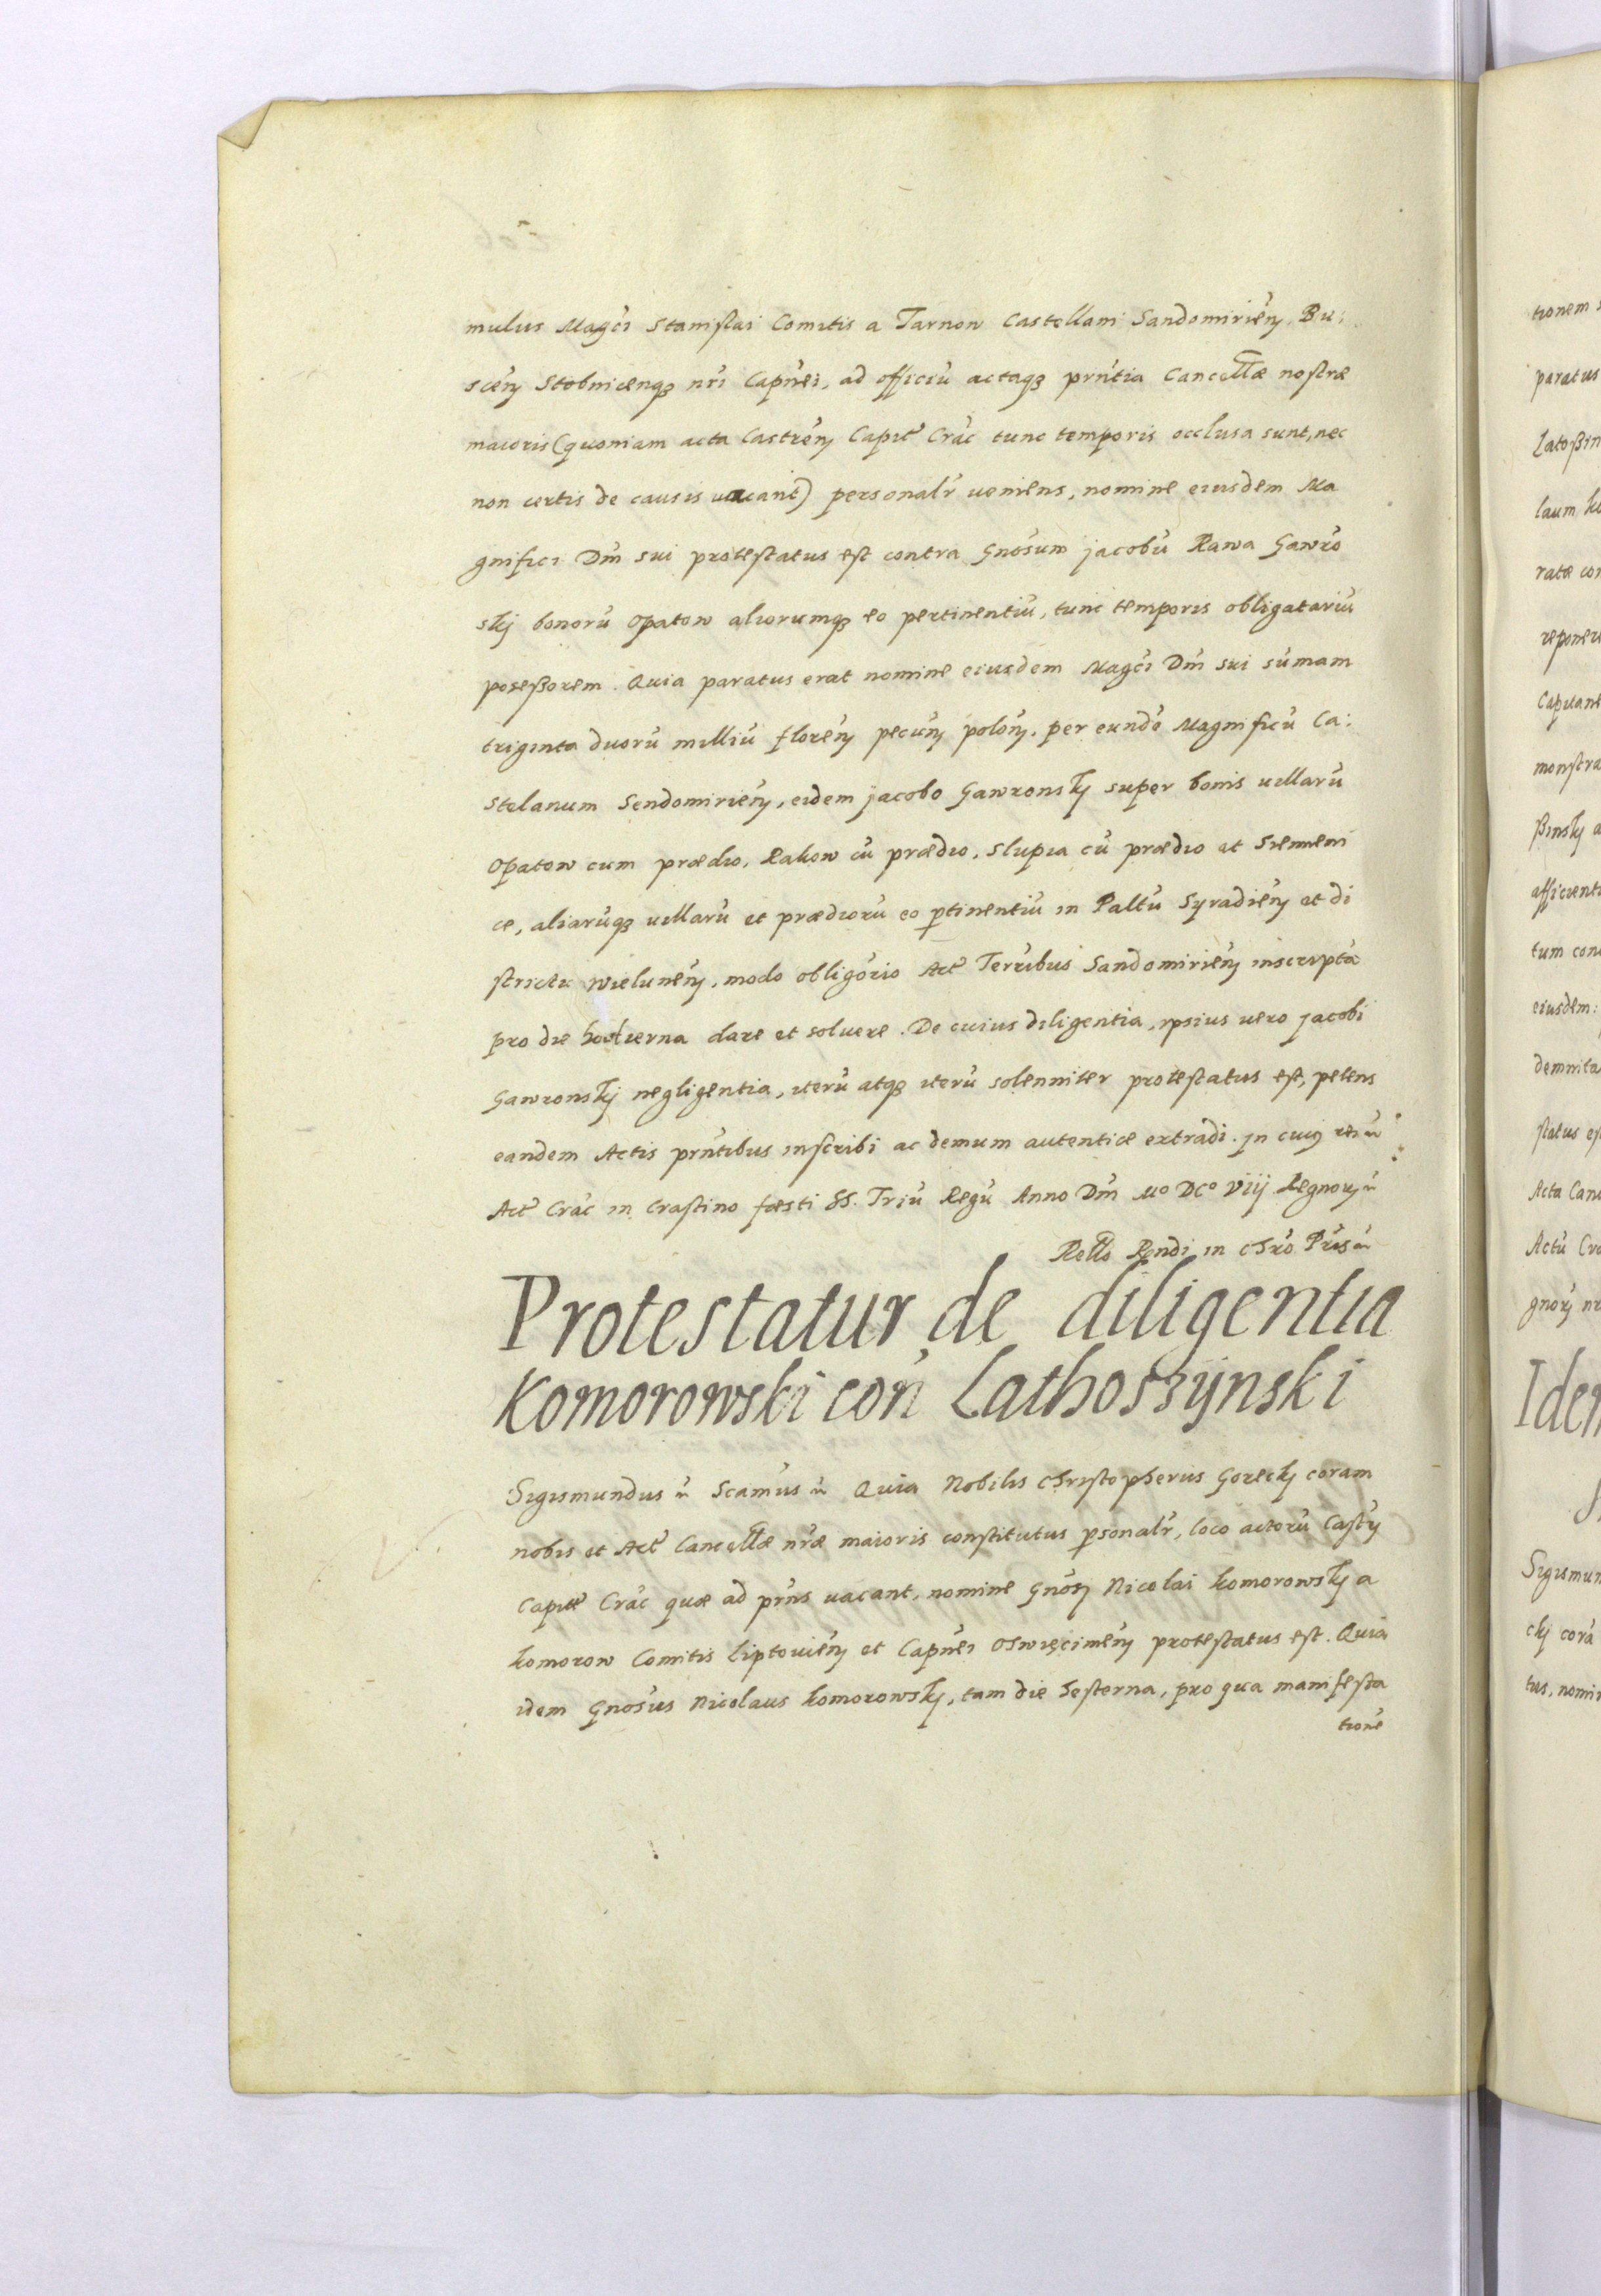 mulus Magc̃i Stanislai Comitis a Tarnow Castellani Sandomirieñ, Bu:
sceñ Stobnicenqȝ nr̃i Capñei, ad officiũ actaqȝ prñtia Cancellæ nostræ
maioris (quoniam acta Castreñ Capit̃ Crac̃ tunc temporis occlusa sunt, nec
non certis de causis uacant) personalr̃ ueniens, nomine eiusdem Ma
gnifici Dñi sui protestatus est contra Gnõsum jacobũ Rawa Gawrõ
skj bonorũ Opatow aliorumqȝ eo pertinentiũ, tunc temporis obligatariũ
poseßorem. Quia paratus erat nomine eiusdem Magc̃i Dñi sui sũmam
triginta duorũ milliũ floreñ pecuñ poloñ. per eundẽ Magnificũ Ca:
stelanum Sendomirieñ, eidem jacobo Gawronskj super bonis uillarũ
Opatow cum prædio, Rakow cũ prædio, Slupia cũ prædio et Siemieni
ce, aliarũqȝ uillarũ et prædiorũ eo ꝑtinentiũ in Paltũ Syradieñ et di
strictu wieluneñ, modo obligõrio Act̃ Terr̃ibus Sandomirieñ inscripta
pro die hodierna dare et soluere. De cuius diligentia, ipsius uero jacobi
Gawronskj negligentia, iterũ atqȝ iterũ solenniter protestatus est, petens
eandem Actis prñtibus inscribi ac demum autentice extradi. jn cuiꝰ rei ñ
Act̃ Crac̃ in Crastino fæsti SS. Triũ Regũ Anno Dñi Mº DCº VIIJ Regnorꝝ ñ
Rello Rẽndi in Chrõ Pr̃is ñ
Protestatur de diligentia
Komorowski coñ Lathosszÿnski
Sigismundus ñ Scamũs ñ Quia Nobilis Christopherus Goreckj coram
nobis et Act̃ Cancellæ nr̃æ maioris constitutus ꝑsonalr̃, loco actorũ Castrj
Capit̃ Crac̃ quæ ad prñs uacant, nomine Gnõsj Nicolai komorowskj a
komorow Comitis liptouieñ et Capñei Oswięcimeñ protestatus est. Quia
idem Gnosũs Nicolaus komorowskj, tam die hesterna, pro qua manifesta
tionẽ